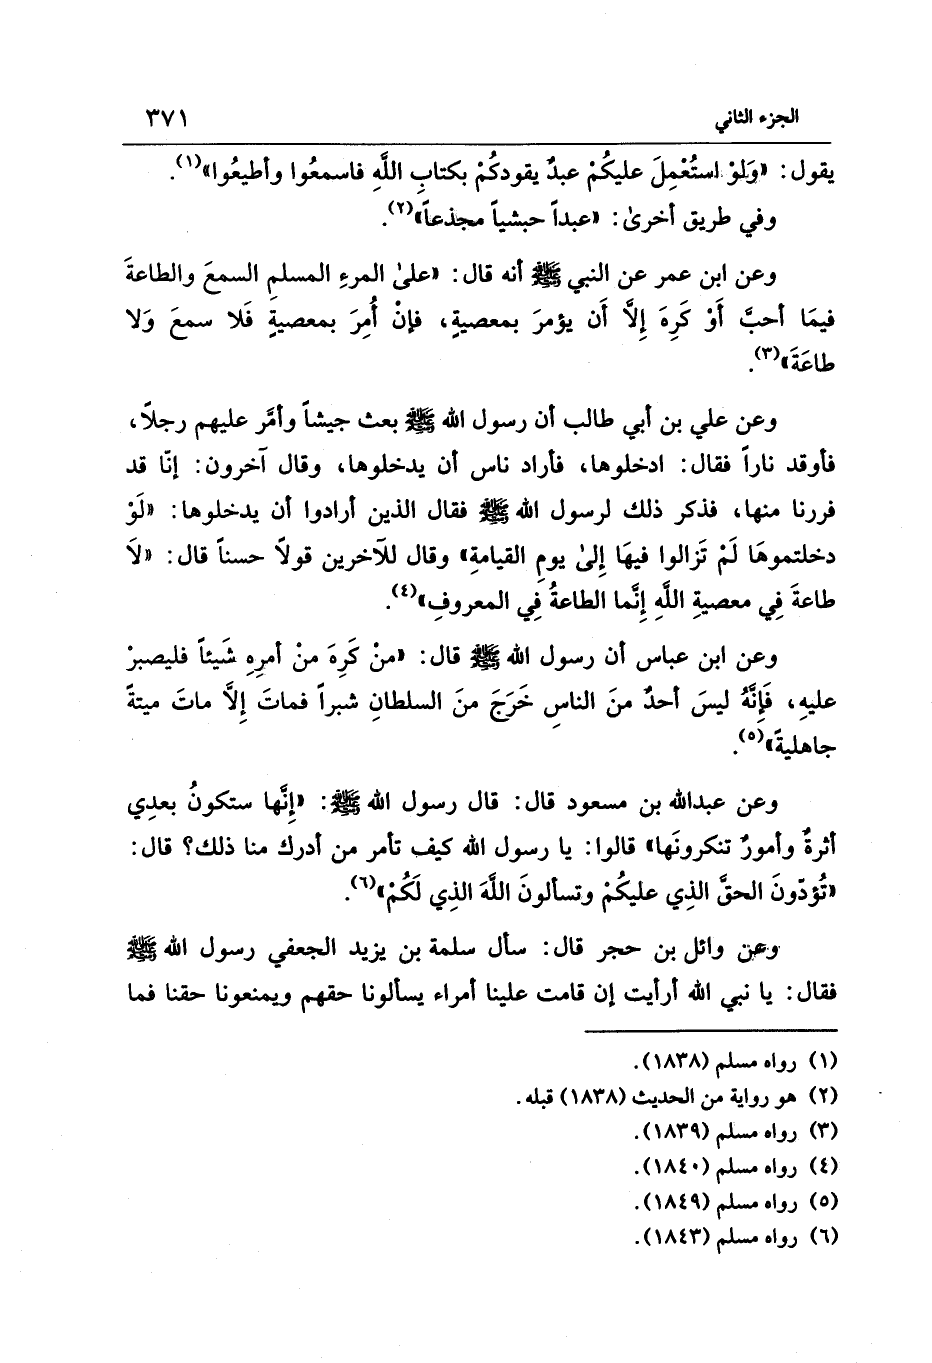 الجزء الثاني ٣٧١
يقول: «وَلَوْ استُعْمِلَ عليكُمْ عبدٌ يقودكُمْ بكتابِ اللَّهِ فاسمعُوا وأطيعُوا»(١).
وفي طريق أخرىٰ: «عبداً حبشياً مجذعاً»(٢).
وعن ابن عمر عن النبي ﷺ أنه قال: «علىٰ المرءِ المسلمِ السمعَ والطاعةَ
فيمَا أحبَّ أَوْ كَرِهَ إِلَّا أَن يؤمرَ بمعصيةٍ، فإنْ أُمِرَ بمعصيةٍ فَلا سمعَ وَلا
طاعَةَ»(٣).
وعن علي بن أبي طالب أن رسول الله ﷺ بعث جيشاً وأمَّر عليهم رجلاً،
فأوقد ناراً فقال: ادخلوها، فأراد ناس أن يدخلوها، وقال آخرون: إنّا قد
فررنا منها، فذكر ذلك لرسول الله ﷺ فقال الذين أرادوا أن يدخلوها: «لَوْ
دخلتموهَا لَمْ تَزالوا فيهَا إِلىٰ يومِ القيامةِ» وقال للآخرين قولاً حسناً قال: «لَا
طاعةَ فِي معصيةِ اللَّهِ إنَّما الطاعةُ فِي المعروفِ»(٤).
وعن ابن عباس أن رسول الله ﷺ قال: «منْ كَرِهَ منْ أمرِهِ شَيئاً فليصبرْ
عليهِ، فَإِنَّهُ ليسَ أحدٌ منَ الناسِ خَرَجَ منَ السلطانِ شبراً فماتَ إِلَّا ماتَ ميتةً
جاهليةً»(٥).
وعن عبدالله بن مسعود قال: قال رسول الله ﷺ: «إنَّها ستكونُ بعدِي
أثرةٌ وأمورٌ تنكرونَها» قالوا: يا رسول الله كيف تأمر من أدرك منا ذلك؟ قال:
«تُؤدّونَ الحقَّ الذِي عليكُمْ وتسألونَ اللَّهَ الذِي لَكُمْ»(٦).
وعن وائل بن حجر قال: سأل سلمة بن يزيد الجعفي رسول الله ﷺ
فقال: يا نبي الله أرأيت إن قامت علينا أمراء يسألونا حقهم ويمنعونا حقنا فما
(١) رواه مسلم (١٨٣٨).
(٢) هو رواية من الحديث (١٨٣٨) قبله.
(٣) رواه مسلم (١٨٣٩).
(٤) رواه مسلم (١٨٤٠).
(٥) رواه مسلم (١٨٤٩).
(٦) رواه مسلم (١٨٤٣).